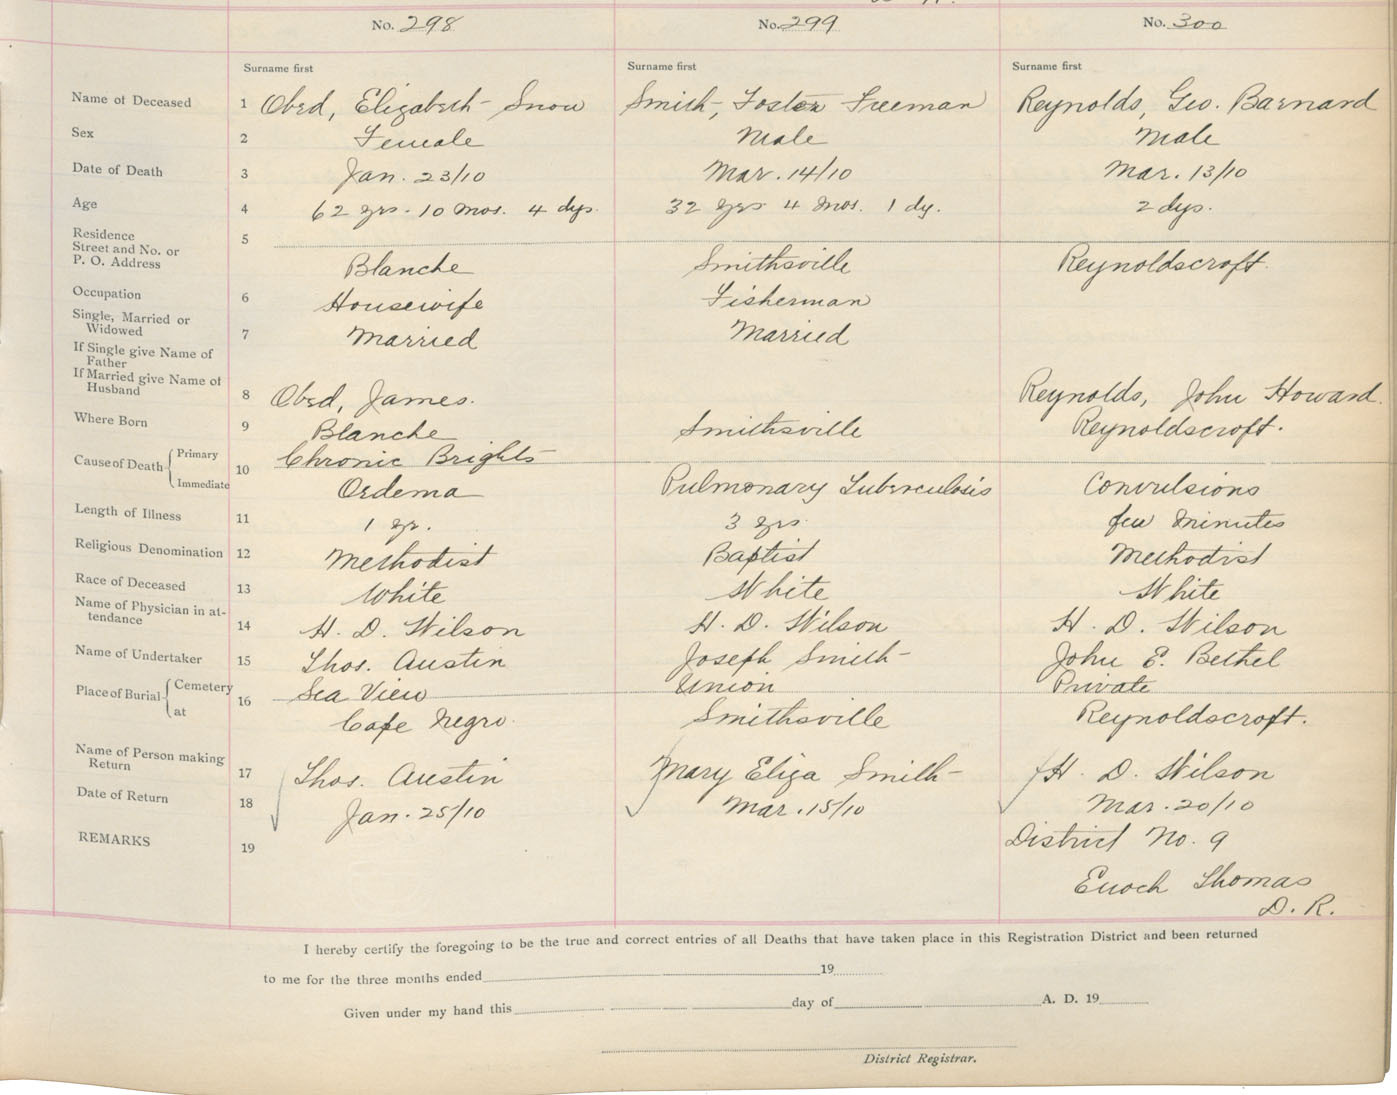 No. 298 No. 299 No. 300
Surname first Surname first Surname first
Name of Deceased 1 Obed, Elizabeth Snow Smith, Foster Freeman Reynolds, Geo. Barnard
Sex 2 Female Male Male
Date of Death 3 Jan. 23/10 Mar. 14/10 Mar. 13/10
Age 4 62 yrs. 10 mos. 4 dys. 32 yrs 4 mos. 1 dy. 2 dys.
Residence
Street and No. or 5
P. O. Address Blanche Smithsville Reynoldscroft.
Occupation 6 Housewife Fisherman
Single, Married or
Widowed 7 Married Married
If Single give Name of
Father
If Married give Name of
Husband 8 Obed, James. Reynolds, John Howard.
Where Born 9 Blanche Smithsville Reynoldscroft.
Cause of Death Primary Chronic Brights
Immediate 10 Oedema Pulmonary Tuberculosis Convulsions
Length of Illness 11 1 yr. 3 yrs few minutes
Religious Denomination 12 Methodist Baptist Methodist
Race of Deceased 13 White White White
Name of Physician in at-
tendance 14 H. D. Wilson H. D. Wilson H. D. Wilson
Name of Undertaker 15 Thos. Austin Joseph Smith John E. Bethel
Place of Burial Cemetery Sea View Union Private
at 16 Cape Negro. Smithsville Reynoldscroft.
Name of Person making
Return 17 Thos. Austin Mary Eliza Smith H. D. Wilson
Date of Return 18 Jan. 25/10 Mar. 15/10 Mar. 20/10
REMARKS 19 District No. 9
Enoch Thomas
D. R.
I hereby certify the foregoing to be the true and correct entries of all Deaths that have taken place in this Registration District and been returned
to me for the three months ended 19
Given under my hand this day of A. D. 19
District Registrar.